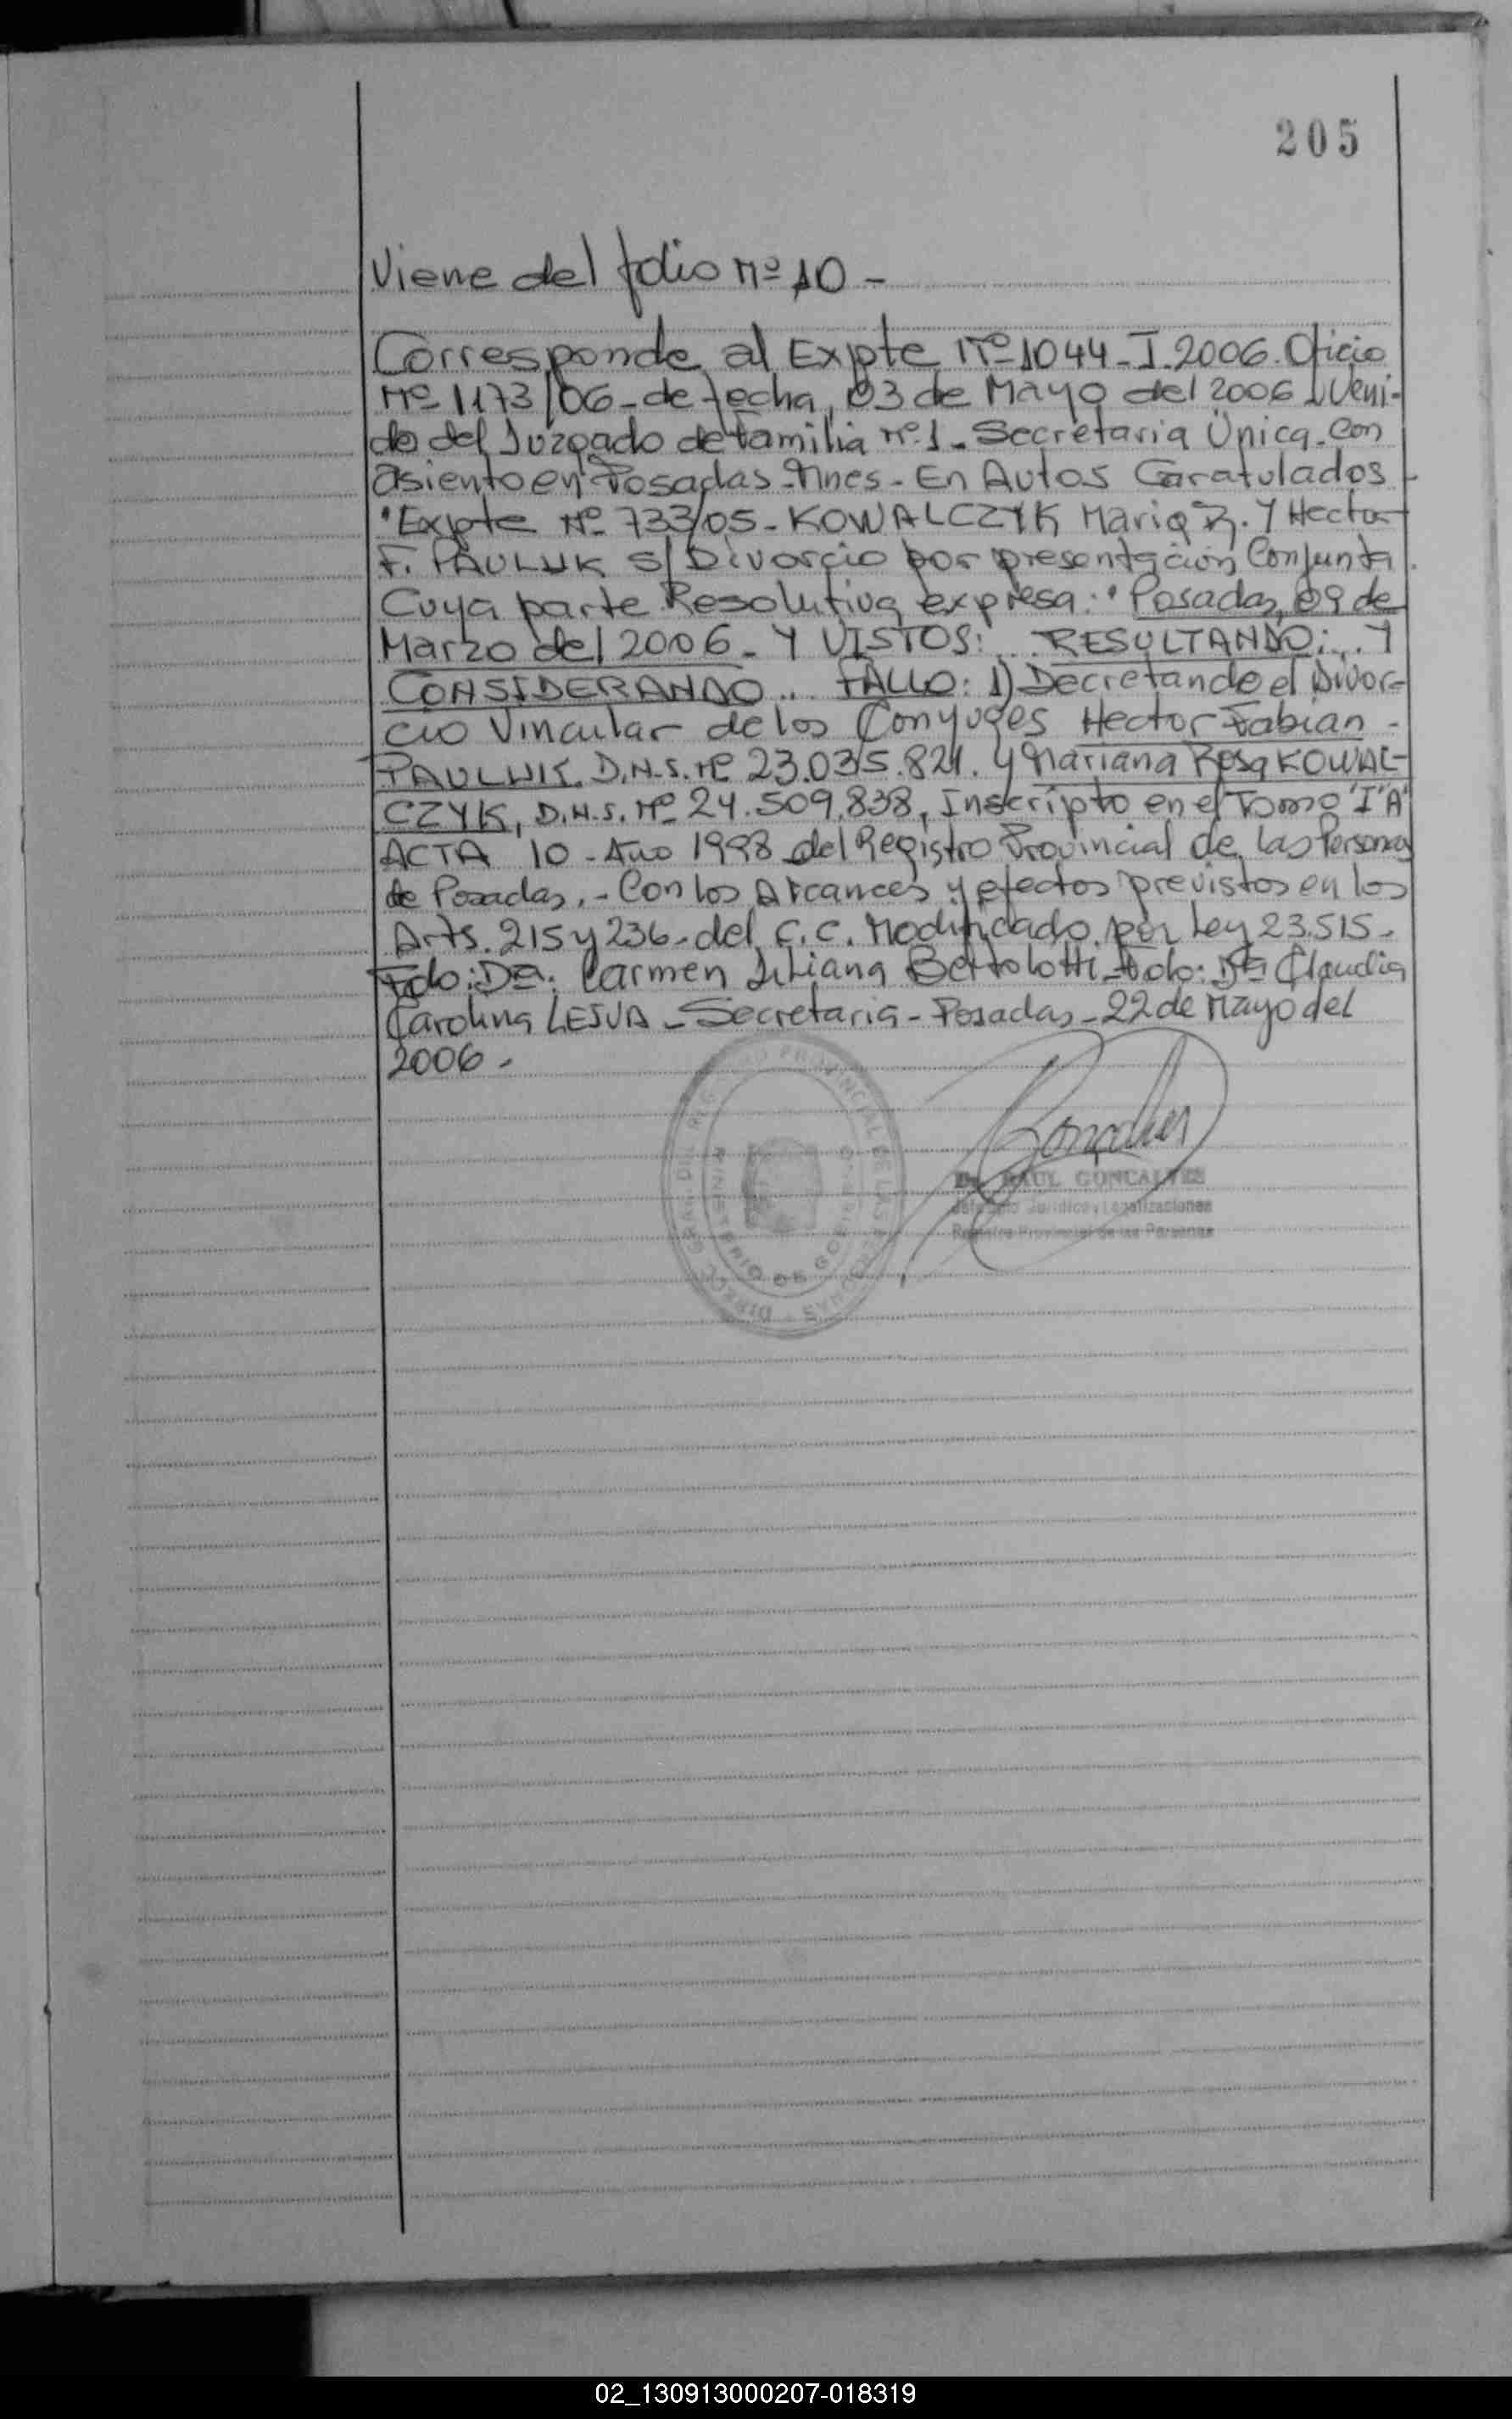 205
Viene del folio Nº 10 -
Corresponde al Expte Nº 1044-I-2006. Oficio
Nº 1173/06 - de fecha, 03 de Mayo del 2006 Veni-
do del Juzgado de Familia Nº 1 - Secretaria Única. Con
asiento en Posadas - Mnes - En Autos Caratulados
"Expte Nº 733/05 - KOWALCZYK Maria R. Y Hector
F. PAULUK S/ Divorcio por presentación Conjunta
Cuya parte Resolutiva expresa: "Posadas, 09 de
Marzo del 2006 - Y VISTOS: ... RESULTANDO: ... Y
CONSIDERANDO ... FALLO: 1) Decretando el Divor-
cio Vincular de los Conyuges Hector Fabian -
PAULUK. D.N.I. Nº 23.035.821. y Mariana Rosa KOWAL-
CZYK, D.N.I. Nº 24.509.838, Inscripto en el Tomo "I" "A"
ACTA 10 - Año 1998 del Registro Provincial de las Personas
de Posadas. - Con los Alcances y efectos previstos en los
Arts. 215 y 236 - del C.C. Modificado por Ley 23.515 -
Fdo: Dra. Carmen Liliana Bertolotti - Fdo: Dra Claudia
Carolina LEIVA - Secretaria - Posadas - 22 de Mayo del
2006 -
DIRECC. GRAL. DEL REGISTRO PROVINCIAL DE LAS PERSONAS
MINISTERIO DE GOBIERNO
RAUL GONCALVES
Jurídico y Legalizaciones
Registro Provincial de las Personas
02_130913000207-018319